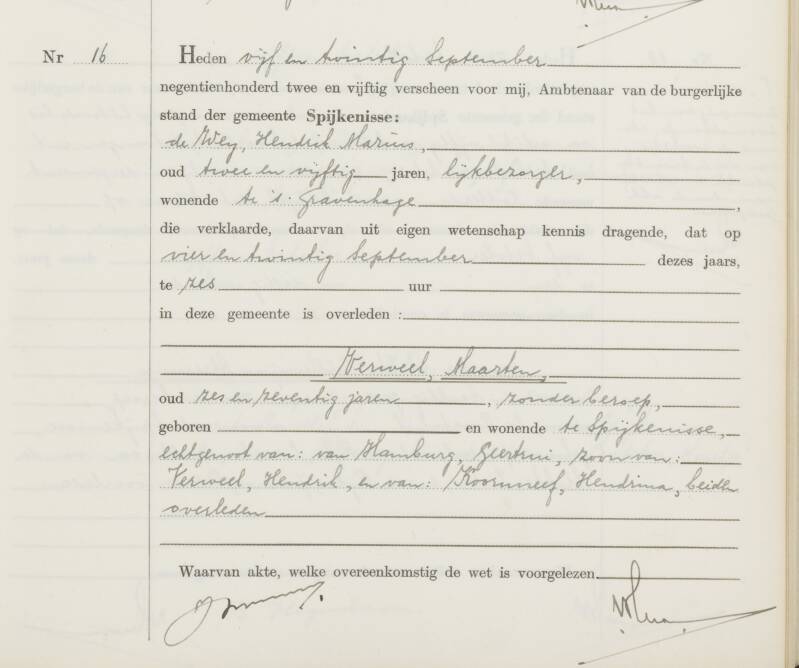 Nr 16
Heden vijf en twintig September
negentienhonderd twee en vijftig verscheen voor mij, Ambtenaar van de burgerlijke
stand der gemeente Spijkenisse:
de Wey, Hendrik Marius,
oud twee en vijftig jaren, lijkbezorger,
wonende te 's-Gravenhage,
die verklaarde, daarvan uit eigen wetenschap kennis dragende, dat op
vier en twintig September dezes jaars,
te zes uur
in deze gemeente is overleden :
Verweel, Maarten,
oud zes en zeventig jaren, zonder beroep,
geboren en wonende te Spijkenisse,
echtgenoot van: van Hamburg, Geertrui, zoon van:
Verweel, Hendrik, en van: Koornneef, Hendrina, beiden
overleden
Waarvan akte, welke overeenkomstig de wet is voorgelezen.